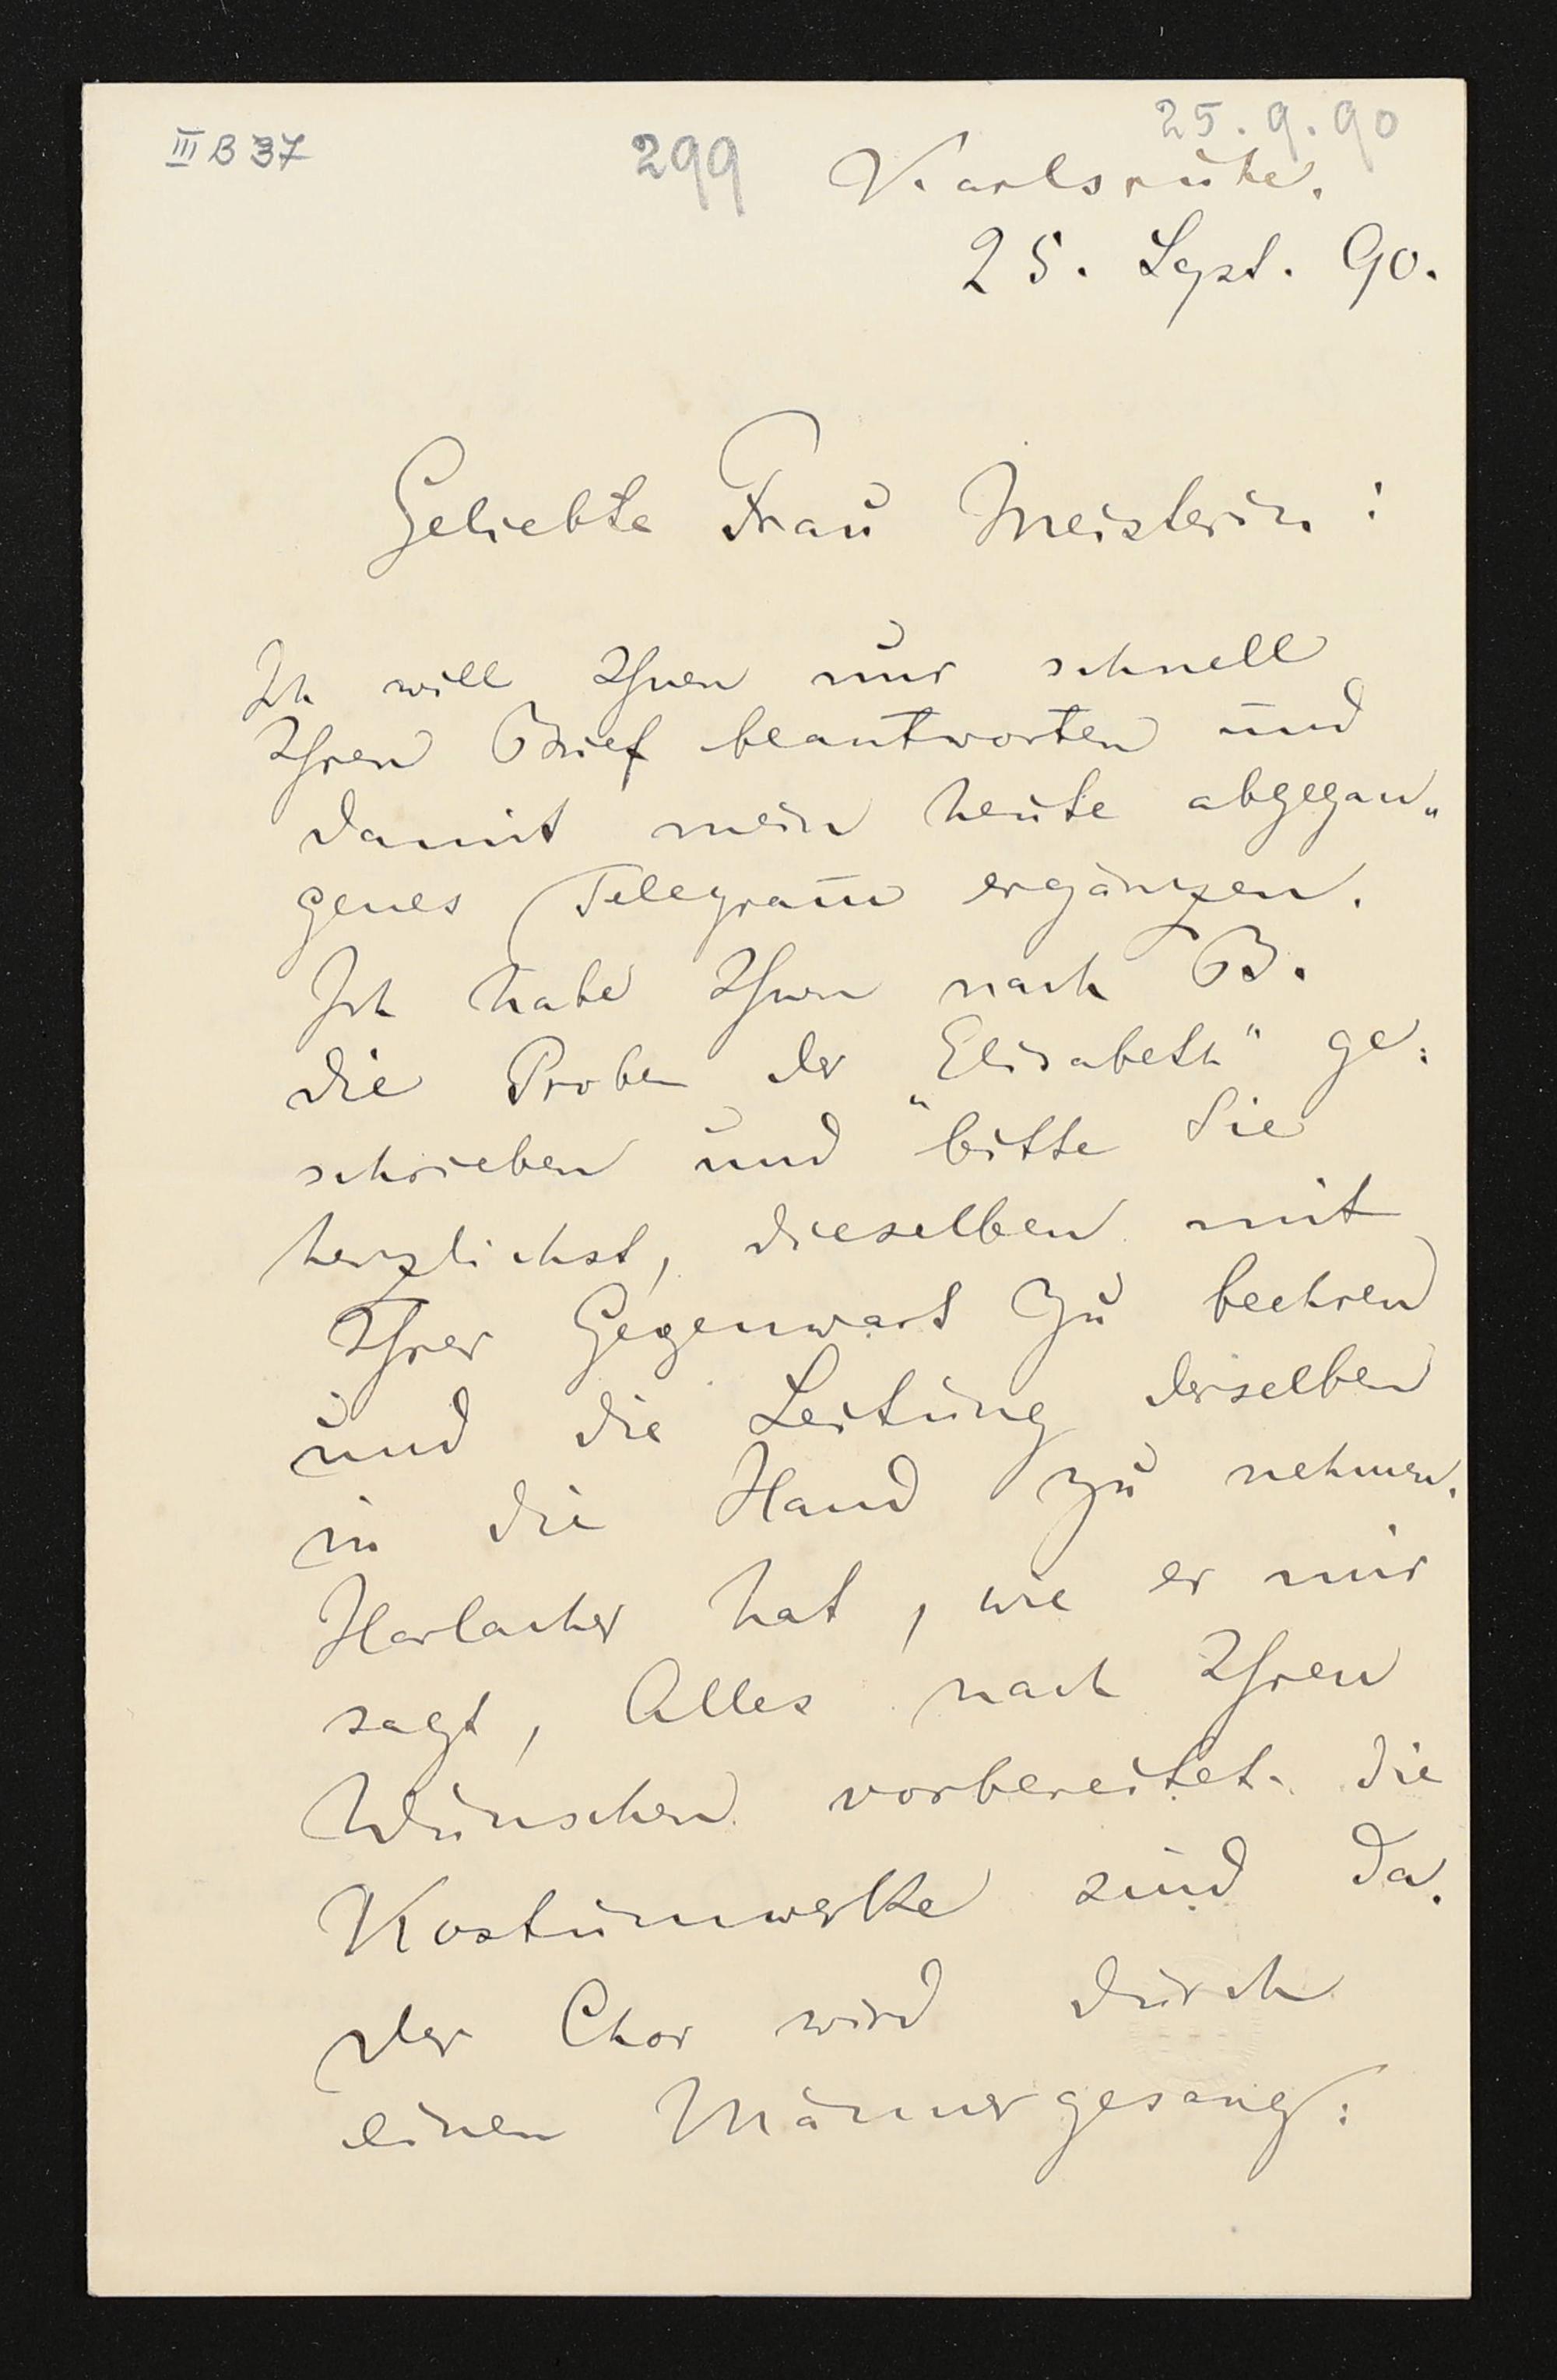 25.9.90
III B 37
299
Karlsruhe.
25. Sept. 90.
Geliebte Frau Meisterin:
Ich will Ihnen nur schnell
Ihren Brief beantworten und
damit mein heute abgegan„
genes Telegram̅ ergänzen.
Ich habe Ihnen nach B.
die Proben der „Elisabeth“ ge:
schrieben und bitte Sie
herzlichst, dieselben mit
Ihrer Gegenwart zu beehren
und die Leitung derselben
in die Hand zu nehmen.
Harlacher hat, wie er mir
sagt, Alles nach Ihren
Wünschen vorbereitet. Die
Kostümwerke sind da.
Der Chor wird durch
einen Männergesang: